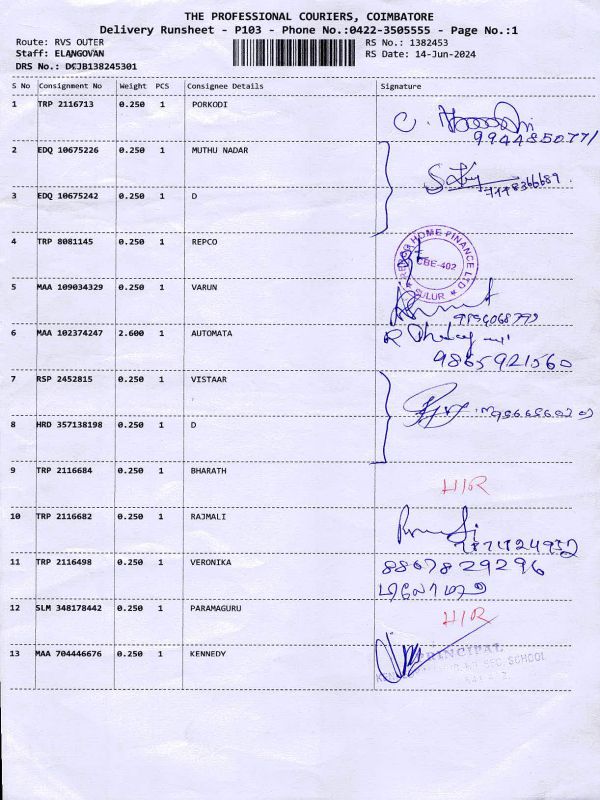 THE PROFESSIONAL COURIERS, COIMBATORE
Delivery Runsheet - P103 - Phone No.:0422-3505555 - Page No.:1
Route: RVS OUTER
RS No.: 1382453
Staff: ELANGOVAN
RS Date: 14-Jun-2024
DRS No.: DCJB138245301
S No Consignment No Weight PCS Consignee Details Signature
1 TRP 2116713 0.250 1 PORKODI
9944850771
2 EDQ 10675226 0.250 1 MUTHU NADAR
3 EDQ 10675242 0.250 1 D
4 TRP 8081145 0.250 1 REPCO
REPCO HOME FINANCE LTD
CBE-402
SULUR
5 MAA 109034329 0.250 1 VARUN
6 MAA 102374247 2.600 1 AUTOMATA
9865921560
7 RSP 2452815 0.250 1 VISTAAR
8 HRD 357138198 0.250 1 D
9 TRP 2116684 0.250 1 BHARATH
H/R
10 TRP 2116682 0.250 1 RAJMALI
11 TRP 2116498 0.250 1 VERONIKA
8867829296
12 SLM 348178442 0.250 1 PARAMAGURU
H/R
13 MAA 704446676 0.250 1 KENNEDY
PRINCIPAL
SEC SCHOOL